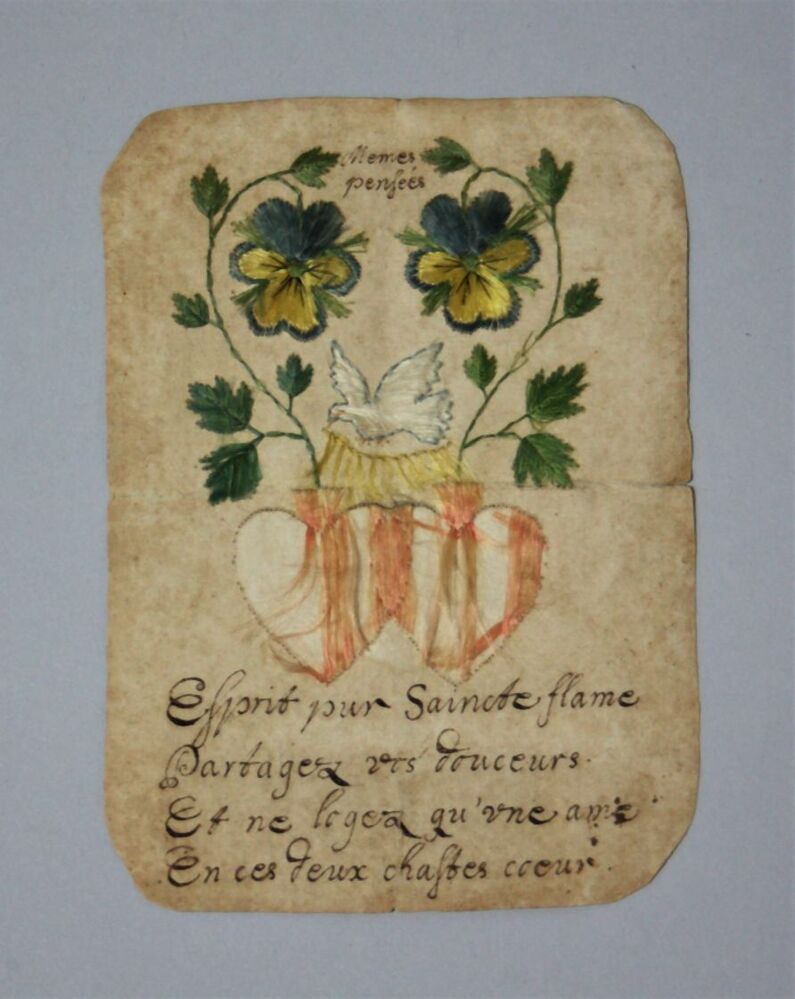 Memes
penſeés
Eſprit pur Saincte flame
Partagez vos douceurs.
Et ne logez qu'vne ame
En ces deux chaſtes coeur.